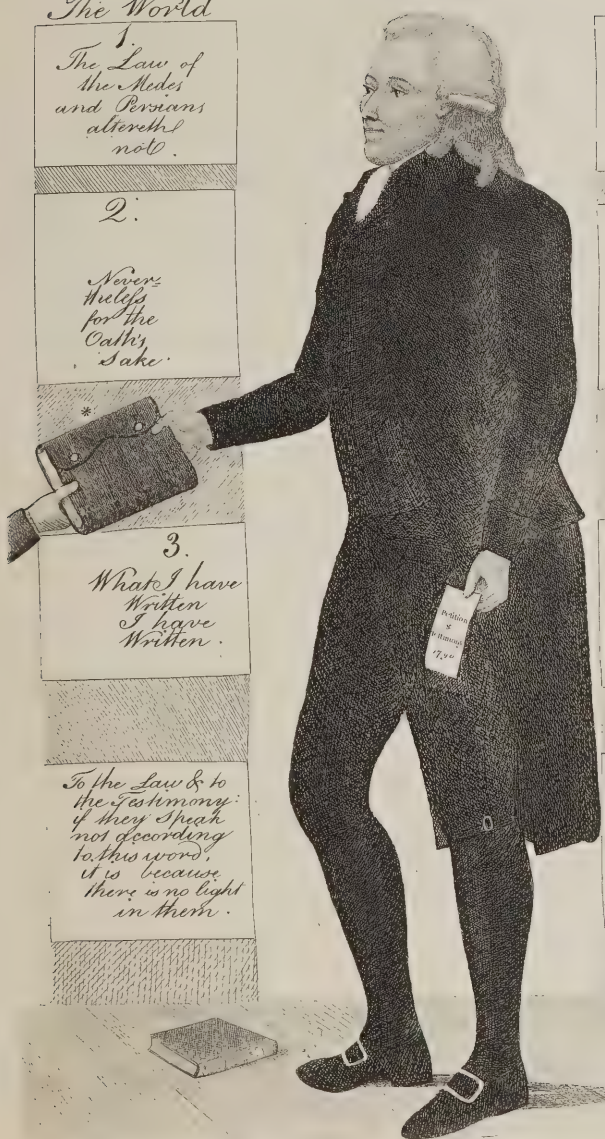 The World
1.
The Law of
the Medes
and Persians
altereth
not.
2.
Never=
theleſs
for the
Oath's
Sake.
*
3.
What I have
Written
I have
Written.
Petition
&
17.90
To the Law & to
the Testimony:
if they Speak
not according
to this word,
it is because
there is no light
in them.